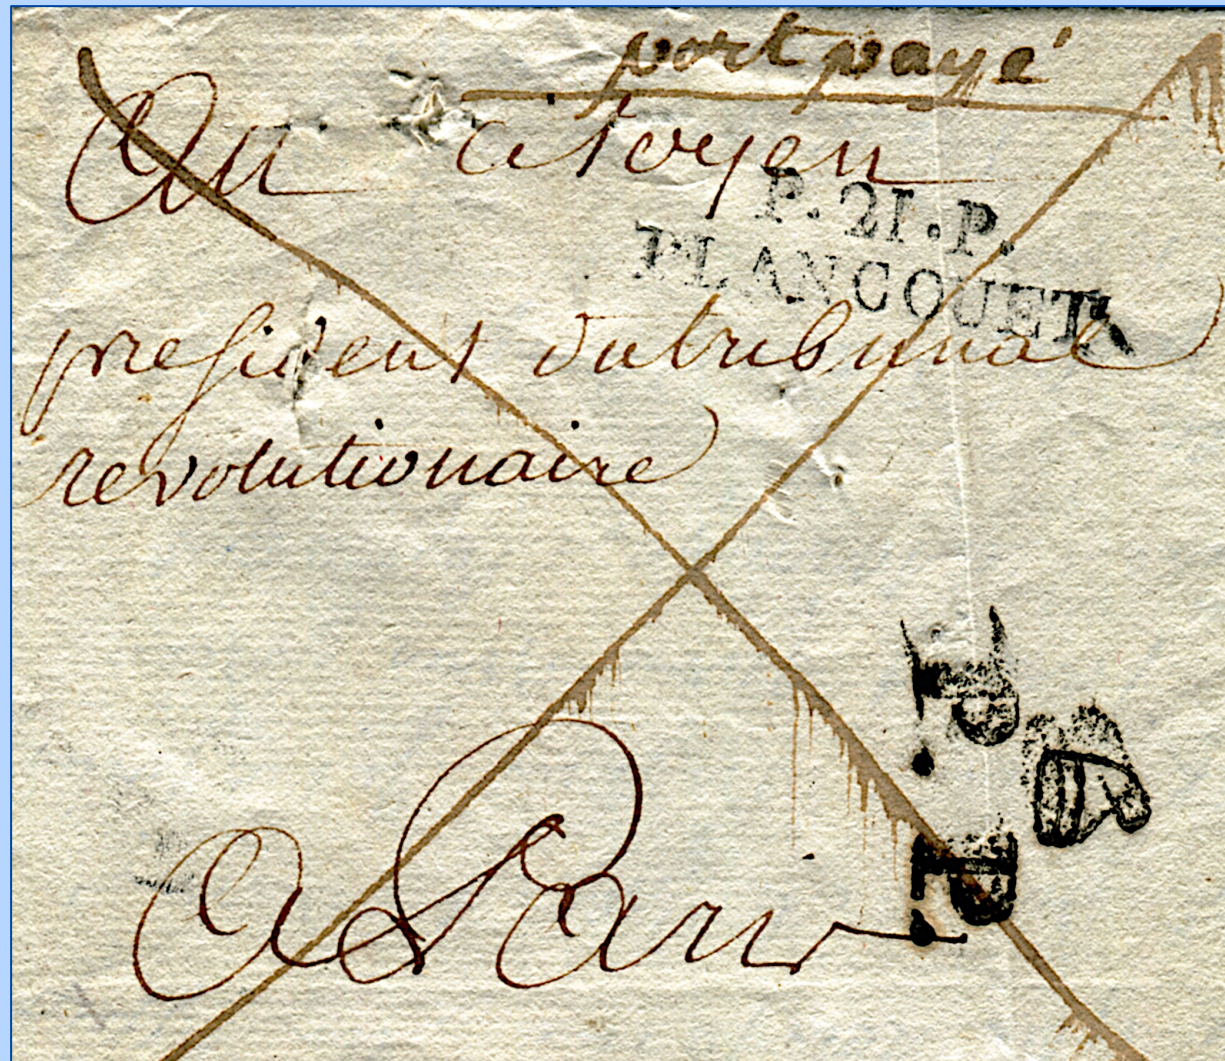 port payé
Au citoyen
P. 21. P.
PLANCOUET
president du tribunal
revolutionaire
P.P.
P
A Paris